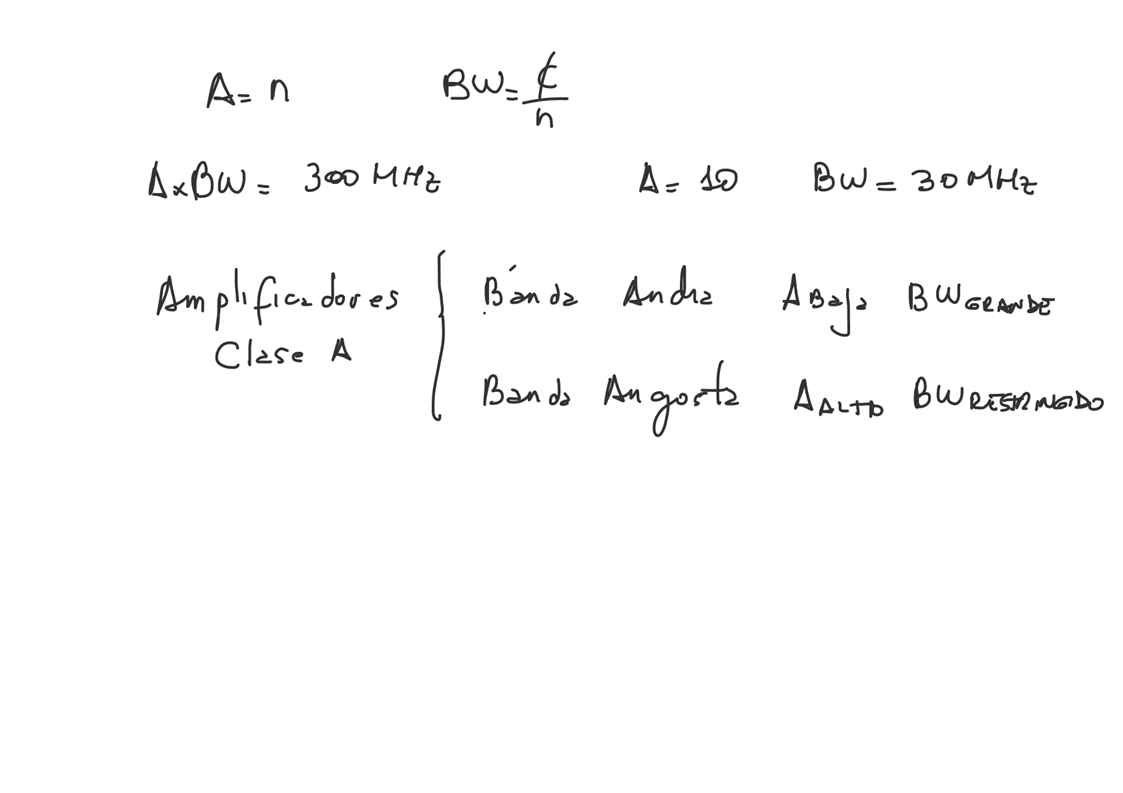 A = n BW = ₵/n
A x BW = 300 MHz A = 10 BW = 30 MHz
Amplificadores { Banda Ancha A Baja BW GRANDE
Clase A
Banda Angosta A ALTO BW RESTRINGIDO